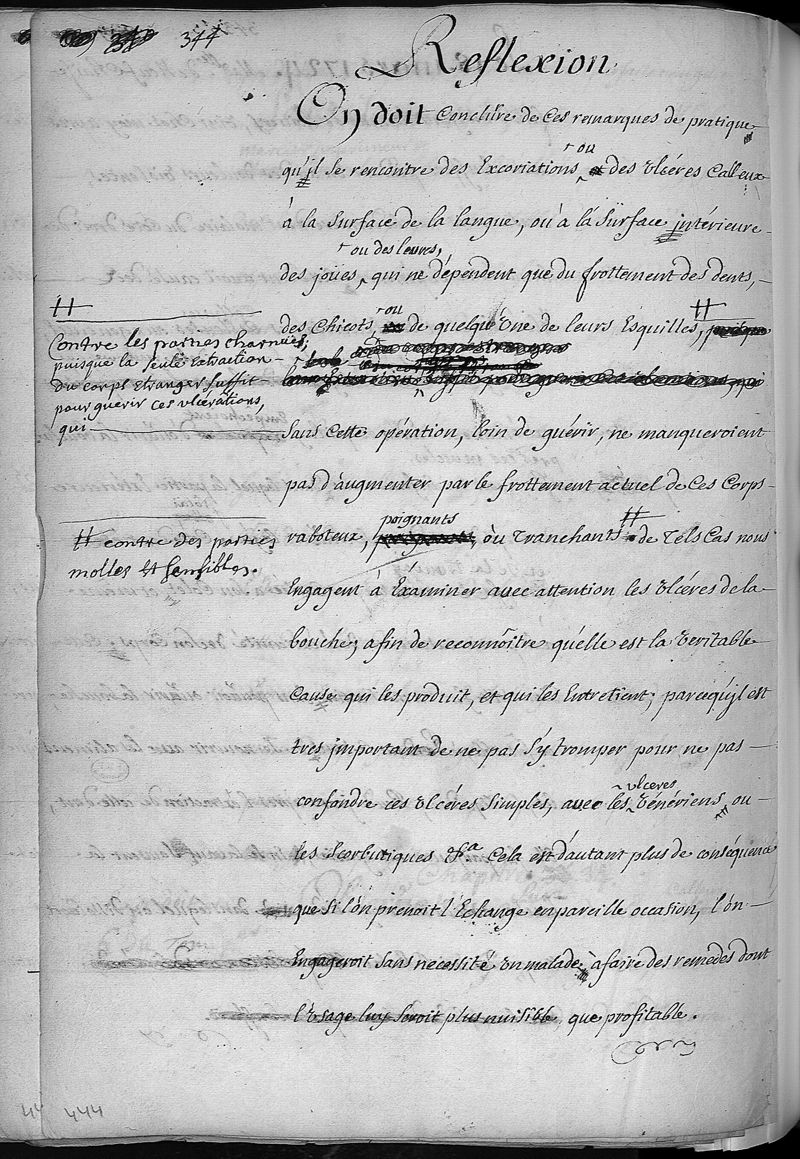 344
Reflexion
On doit Conclüre de Ces remarques de pratique
ou
qu'il se rencontre des Excoriations des Ulcéres Calleux
à la Surface de la langue, ou à la Sürface intérieure
ou des levres,
des joües, qui ne dépendent que du frottement des dents,
ou
des Chicots, de quelqu'Une de leurs Esquilles, #
#
Contre les parties charnües,
puisque la seule extraction
du corps étranger suffit
pour guérir ces ulcérations,
qui
Sans Cette opération, loin de guérir, ne manqueroient
pas d'augmenter par le frottement actuel de Ces Corps
poignants
raboteux, ou Tranchants # de Tels Cas nous
# contre des parties
molles et sensibles.
Engagent à Examiner avec attention les Ulcéres de la
bouche, afin de reconnôitre quélle est la Veritable
Cause qui les produit, et qui les Entretient; parcequ'jl est
tres jmportant de ne pas S'y tromper pour ne pas
ulceres
confondre ces Ulcéres Simples, avec les Vénériens, ou
les Scorbutiques &a. Cela est d'autant plus de conséquence
que Si l'ôn prenoit l'Echange en pareille occasion, l'ôn
Engageroit Sans necessité Un malade à faire des remèdes dont
l'Usage luy Seroit plus nuisible, que profitable.
444